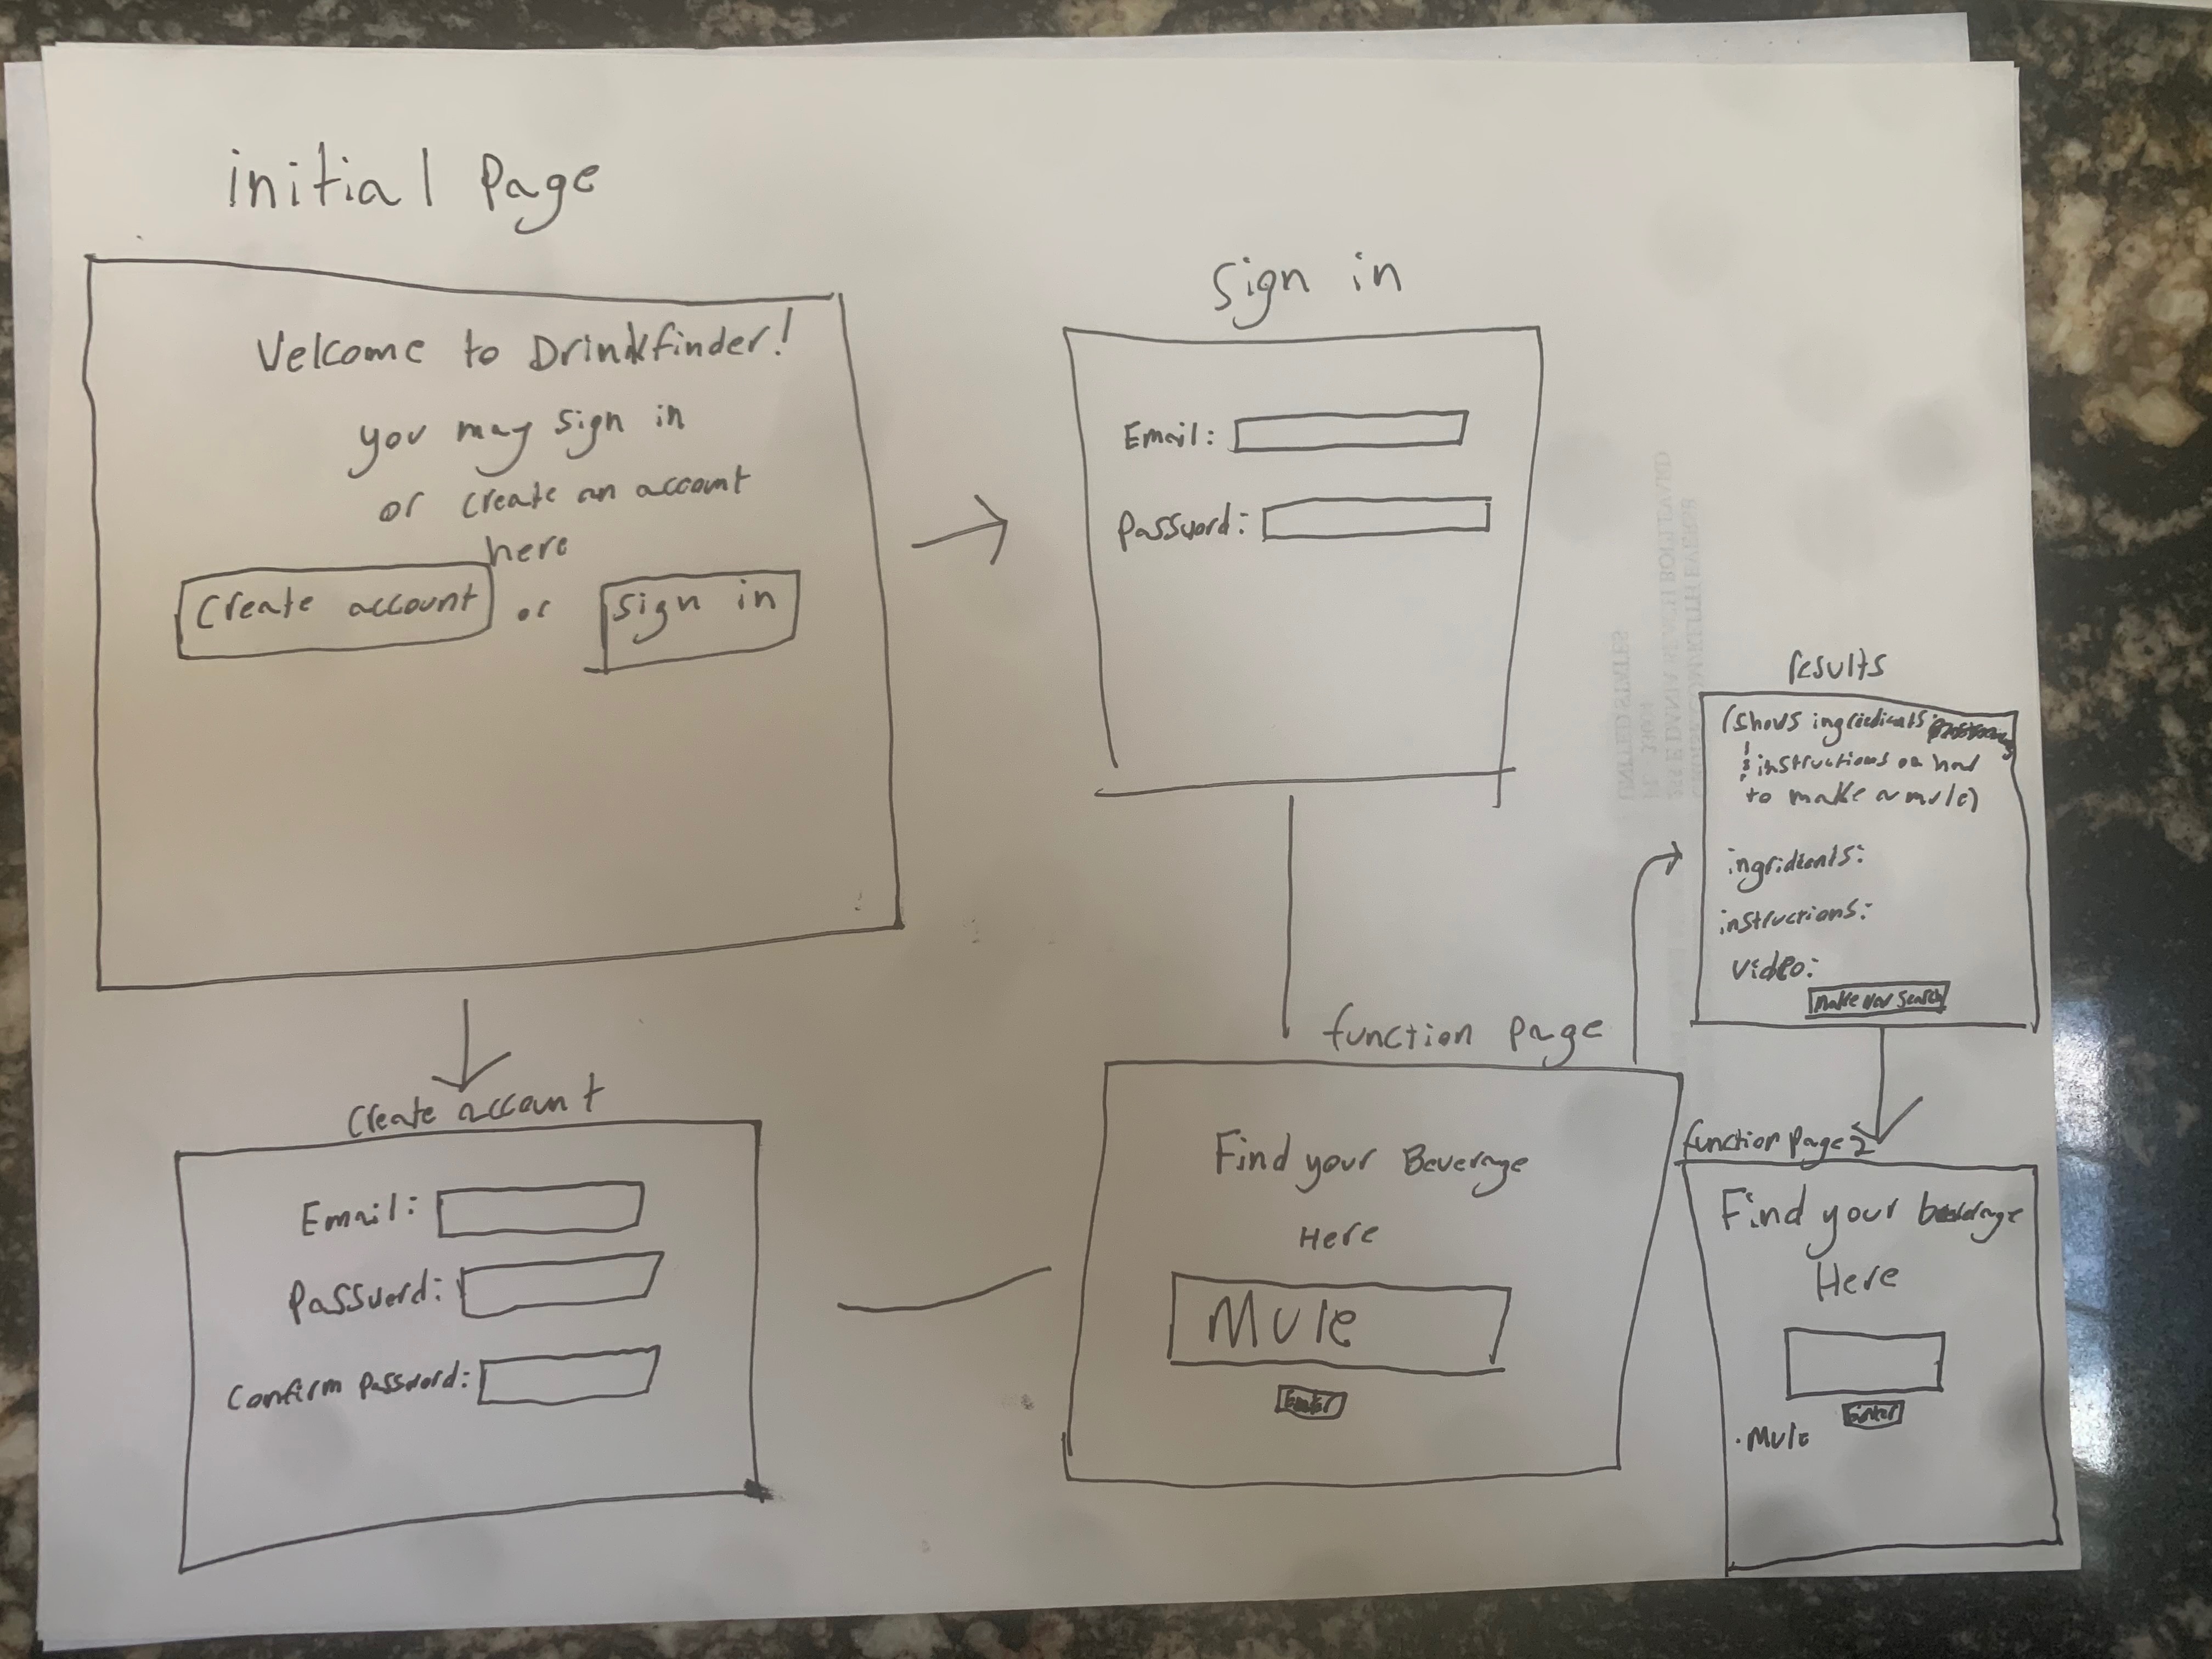 initial page
Welcome to Drinkfinder!
you may sign in
or create an account
here
Create account or sign in
Sign in
Email:
Password:
Create account
Email:
Password:
Confirm password:
function page
Find your Beverage
Here
Mule
Enter
results
(shows ingredients
& instructions on how
to make a mule)
ingridients:
instructions:
video:
make new search
function page 2
Find your beverage
Here
Enter
• Mule
UNITED STATES